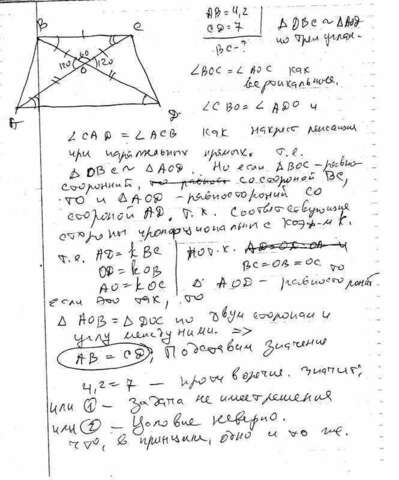 B C
AB = 4,2
CD = 7
BC - ?
Δ OBC ~ Δ AOD
по трем углам.
60
120 120
O
A D
∠BOC = ∠AOC как
вертикальные.
∠CBO = ∠ADO и
∠CAD = ∠ACB как накрест лежащие
при параллельных прямых. т.е.
Δ OBC ~ Δ AOD. Но если ΔBOC - равно-
сторонний, со стороной BC,
то и Δ AOD - равносторонний со
стороной AD. т.к. соответствующие
стороны пропорциональны с коэф-м K.
т.е. AD = k BC
OD = k OB
AO = k OC
Но т.к. AD = OD = OA и
BC = OB = OC то
Δ AOD - равносторон.
если это так, то
Δ AOB = Δ DOC по двум сторонам и
углу между ними. =>
AB = CD, Подставим значения
4,2 = 7 - противоречие. значит,
или 1 - задача не имеет решения
или 2 - условие неверно.
что, в принципе, одно и то же.